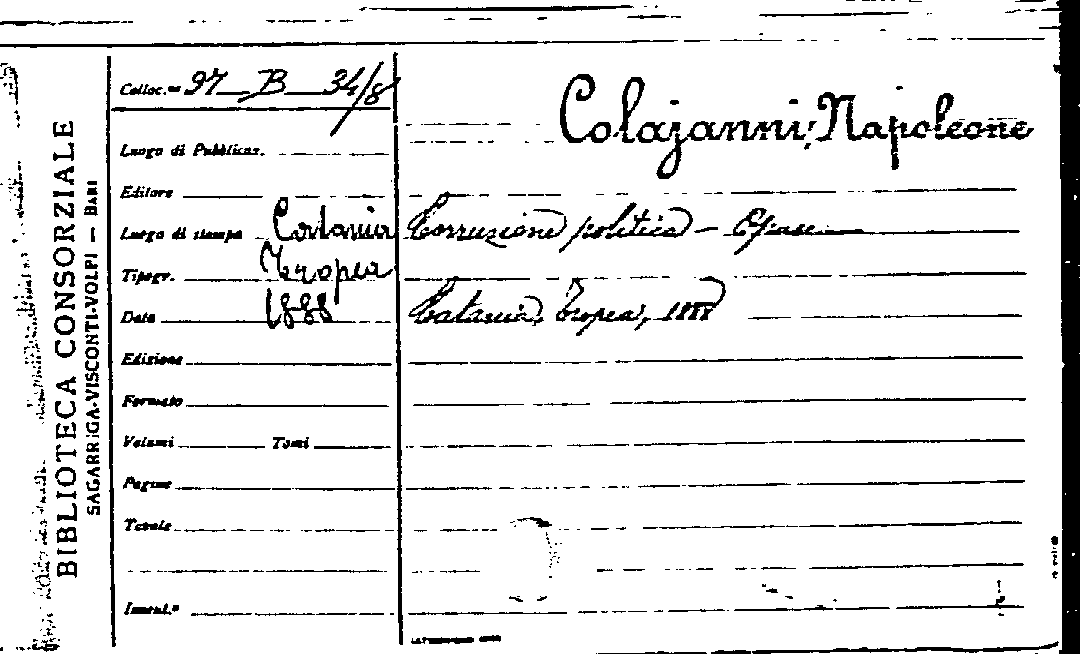 BIBLIOTECA CONSORZIALE
SAGARRIGA-VISCONTI-VOLPI — BARI
Colloc.ne 97 B 34/8
Luogo di Pubblicaz.
Editore
Luogo di stampa Catania
Tipogr. Tropea
Data 1888
Edizione
Formato
Volumi Tomi
Pagine
Tavole
Invent.º
Colajanni, Napoleone
Corruzione politica —
Catania, Tropea, 1888